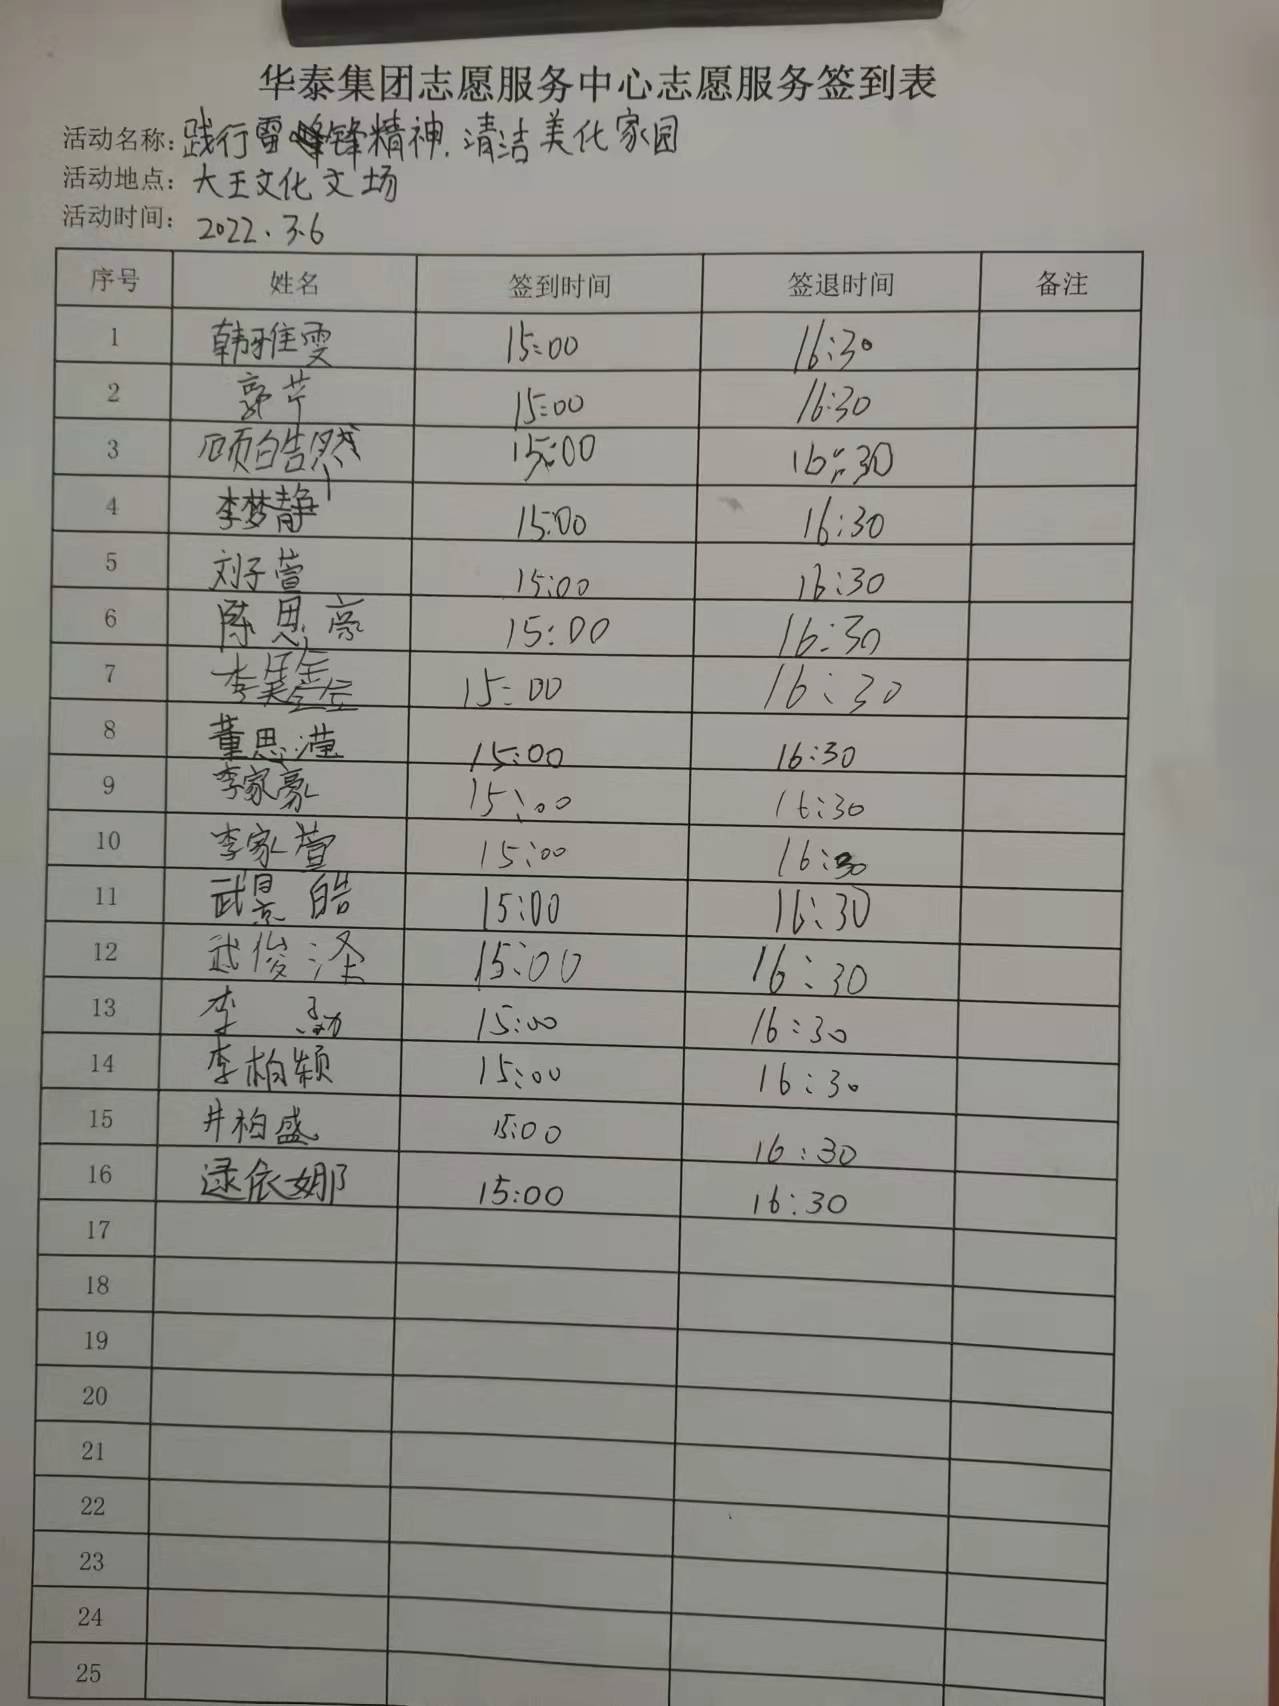 华泰集团志愿服务中心志愿服务签到表
活动名称：践行雷锋精神.清洁美化家园
活动地点：大王文化文场
活动时间：2022.3.6
序号 姓名 签到时间 签退时间 备注
1 韩雅雯 15:00 16:30
2 郭芹 15:00 16:30
3 顾皓然 15:00 16:30
4 李梦静 15:00 16:30
5 刘子萱 15:00 16:30
6 陈思豪 15:00 16:30
7 李 15:00 16:30
8 董思滢 15:00 16:30
9 李家豪 15:00 16:30
10 李家萱 15:00 16:30
11 武景皓 15:00 16:30
12 武俊泽 15:00 16:30
13 李 15:00 16:30
14 李柏颖 15:00 16:30
15 井柏盛 15:00 16:30
16 逯依娜 15:00 16:30
17
18
19
20
21
22
23
24
25